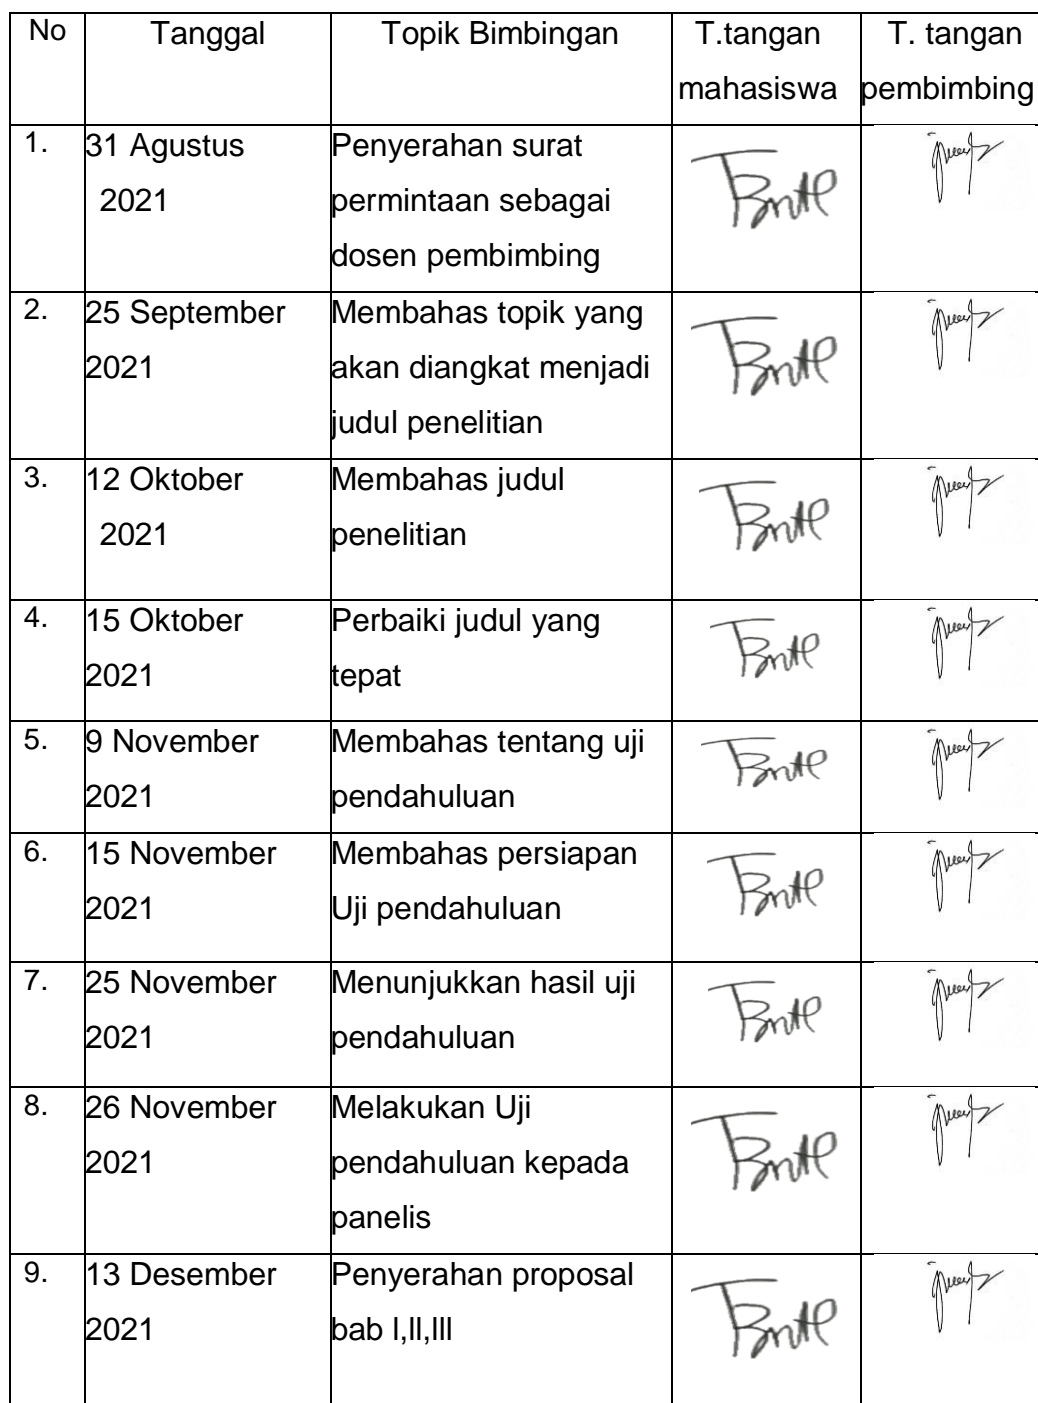 No Tanggal Topik Bimbingan T.tangan T. tangan
mahasiswa pembimbing
1. 31 Agustus Penyerahan surat
2021 permintaan sebagai
dosen pembimbing
2. 25 September Membahas topik yang
2021 akan diangkat menjadi
judul penelitian
3. 12 Oktober Membahas judul
2021 penelitian
4. 15 Oktober Perbaiki judul yang
2021 tepat
5. 9 November Membahas tentang uji
2021 pendahuluan
6. 15 November Membahas persiapan
2021 Uji pendahuluan
7. 25 November Menunjukkan hasil uji
2021 pendahuluan
8. 26 November Melakukan Uji
2021 pendahuluan kepada
panelis
9. 13 Desember Penyerahan proposal
2021 bab I,II,III